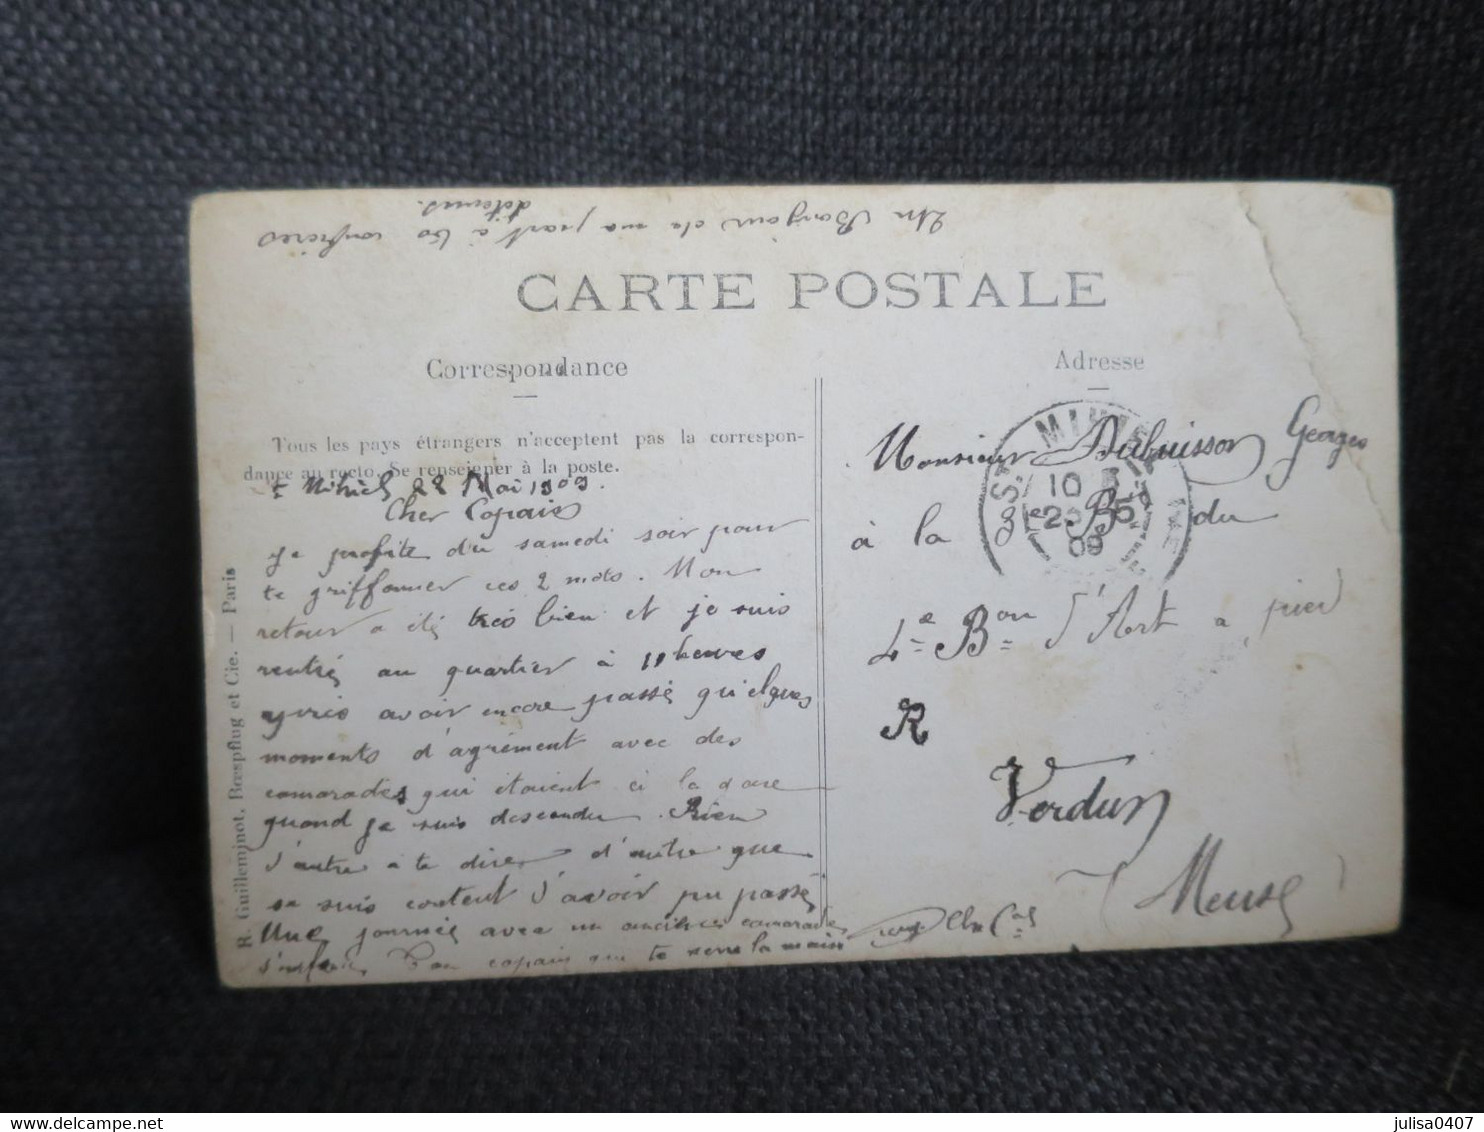 Un Bonjour de ma part à tes confrères
détenus.
CARTE POSTALE
Correspondance
Adresse
Tous les pays étrangers n'acceptent pas la correspon-
dance au recto. Se renseigner à la poste.
St Mihiel 22 Mai 1909.
Cher Copain
Je profite du samedi soir pour
te griffonner ces 2 mots. Mon
retour a été très bien et je suis
rentré au quartier à 11 heures
après avoir encore passé quelques
moments d'agrément avec des
camarades qui étaient à la gare
quand je suis descendu. Rien
d'autre à te dire d'autre que
je suis content d'avoir pu passé
une journée avec un ancien camarade
d'enfance. Ton copain qui te serre la main
Monsieur Dubuisson Georges
à la 3e Bie du
4e Bon d'Art a pied
R
Verdun
(Meuse)
ST MIHIEL
10
23 5
09
MEUSE
R. Guilleminot, Bœspflug et Cie. — Paris
julisa0407